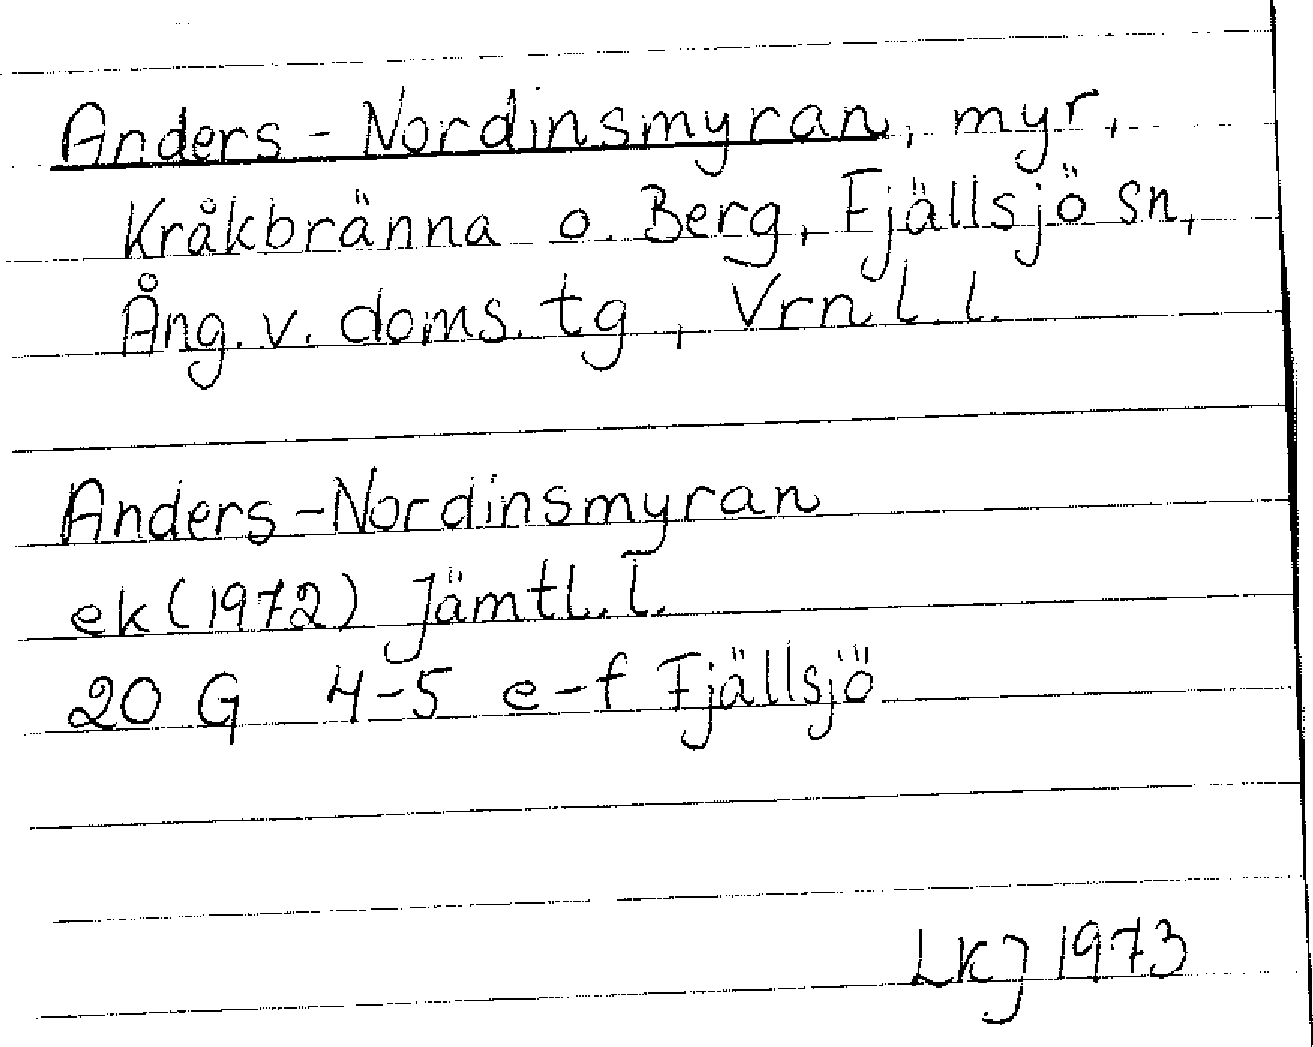 Anders-Nordinsmyran, myr,
Kråkbränna o. Berg, Fjällsjö sn,
Ång. v. doms. tg, Vrnl l.
Anders-Nordinsmyran
ek (1972) Jämtl. l.
20 G 4-5 e-f Fjällsjö
LKJ 1973